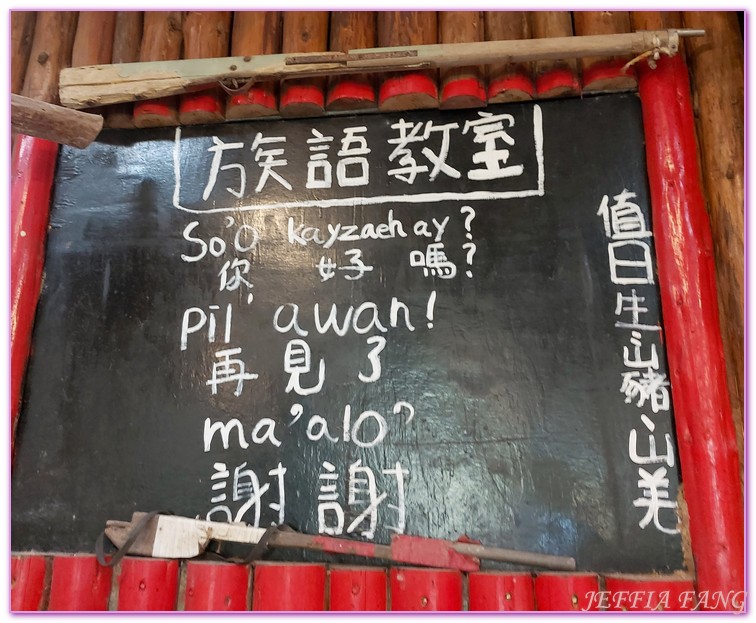 族語教室
So'o kayzaeh ay?
你 好 嗎?
pil'awan!
再見了
ma'alo'
謝謝
值日生山豬山羌
JEFFIA FANG